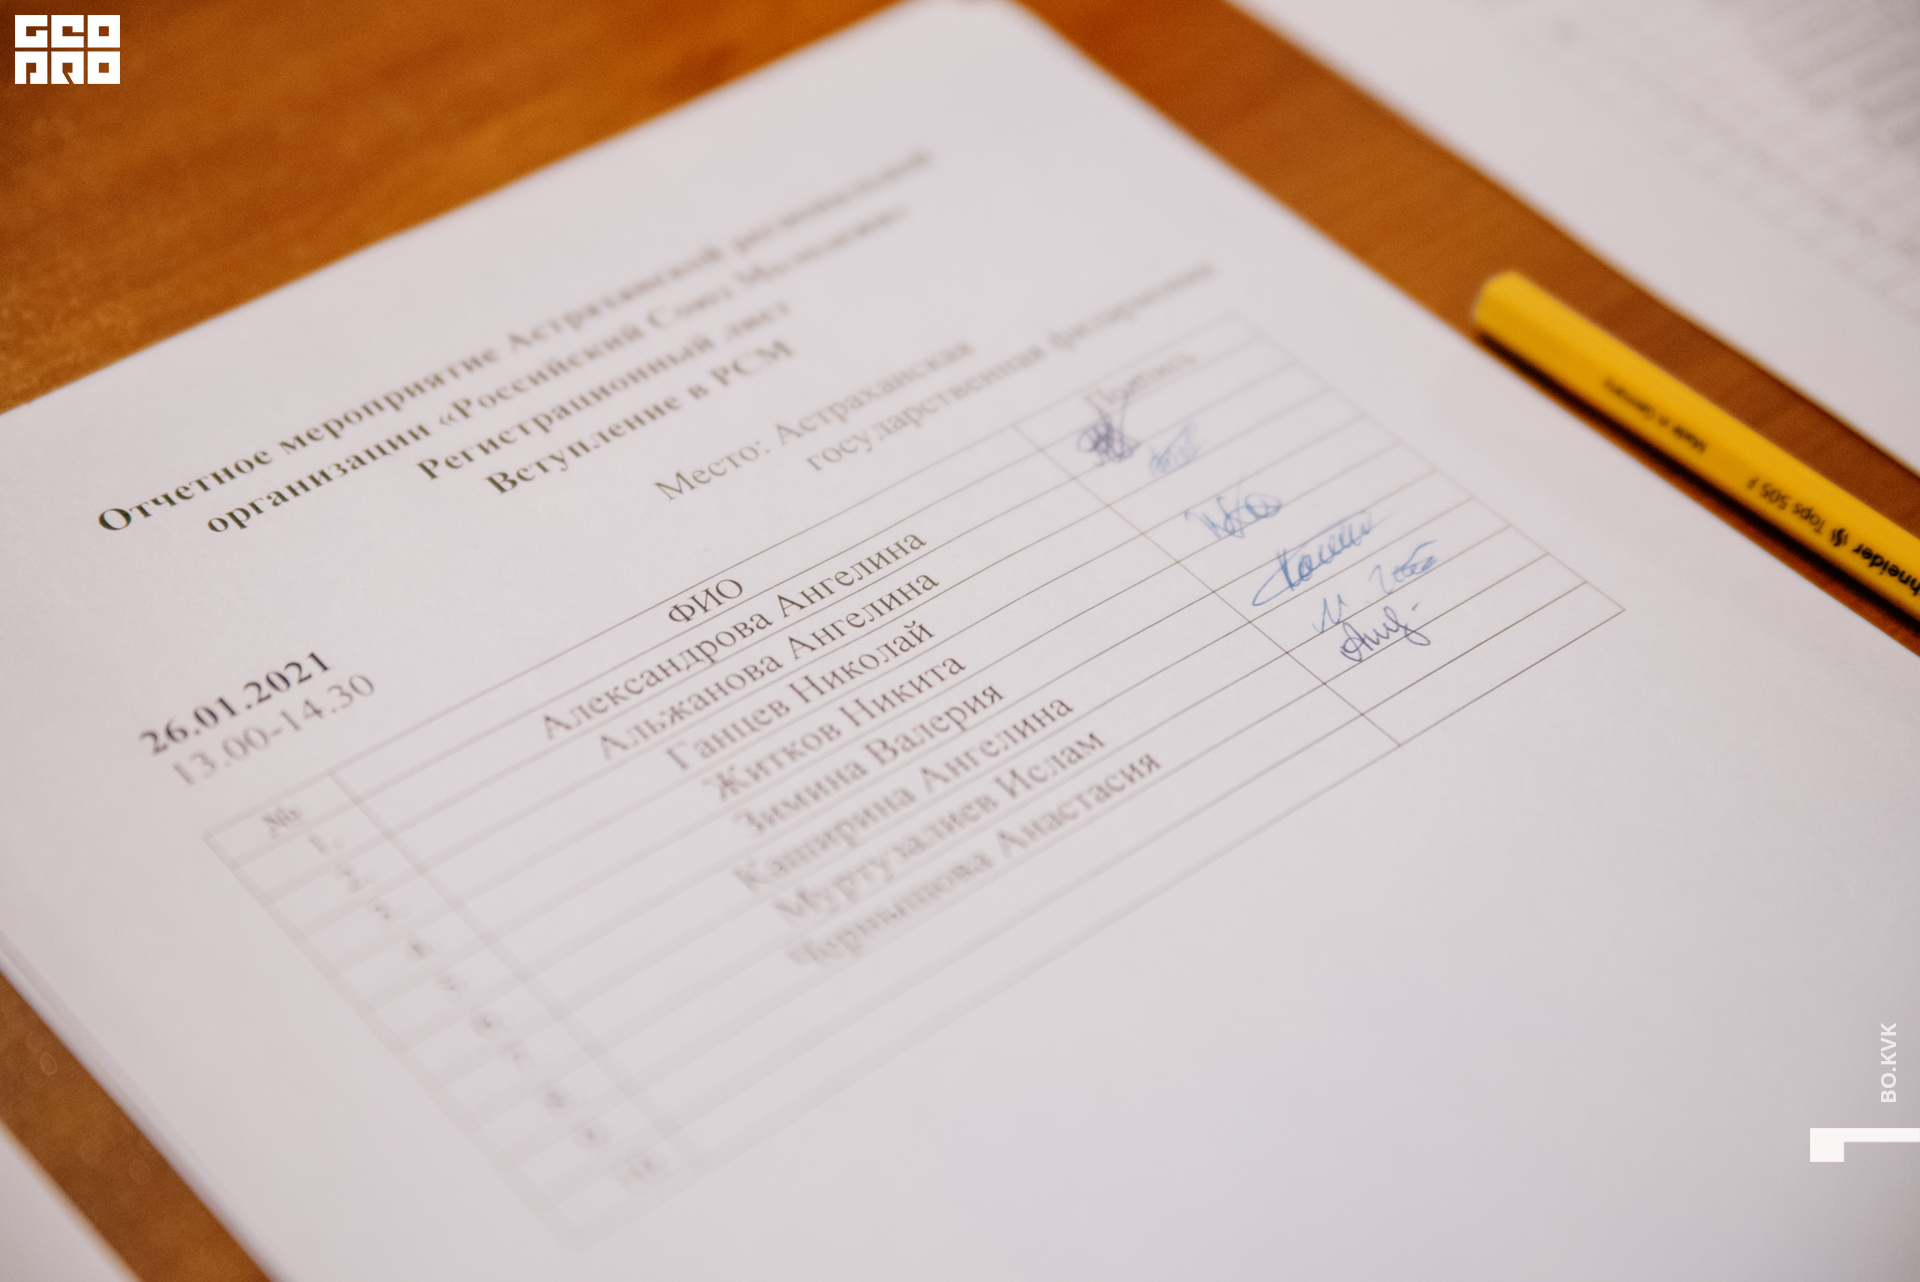 GEO
PRO
Отчетное мероприятие Астраханской региональной
организации «Российский Союз Молодежи»
Регистрационный лист
Вступление в РСМ
Место: Астраханская
государственная филармония
26.01.2021
13.00-14.30
№ ФИО Подпись
1. Александрова Ангелина
2. Альжанова Ангелина
3. Ганцев Николай
4. Житков Никита
5. Зимина Валерия
6. Каширина Ангелина
7. Муртузалиев Ислам
8. Чернышова Анастасия
9.
10.
Made in Germany
Tops 505 F
hneider
BO.KVK